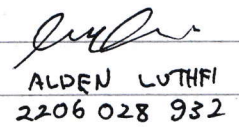 ALDEN LUTHFI
2206 028 932